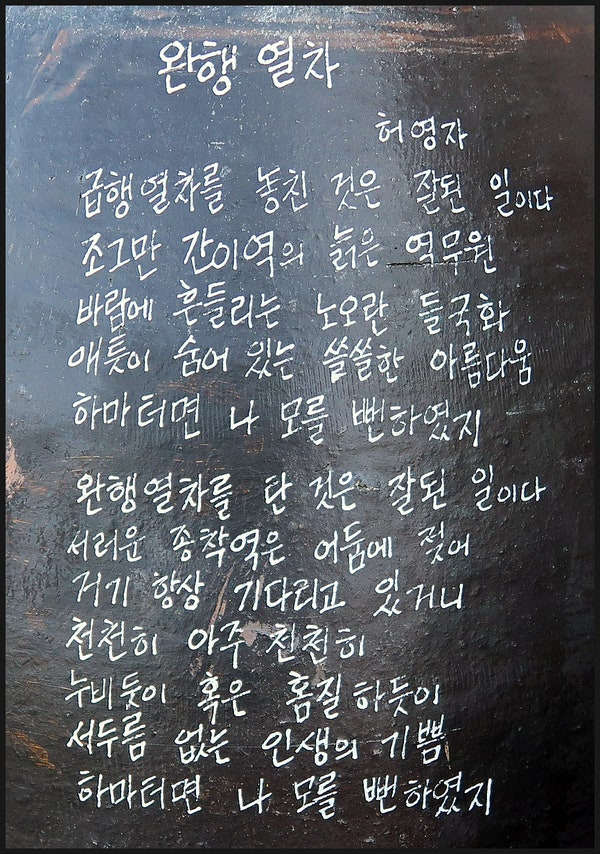 완행 열차
허영자
급행열차를 놓친 것은 잘된 일이다
조그만 간이역의 늙은 역무원
바람에 흔들리는 노오란 들국화
애틋이 숨어 있는 쓸쓸한 아름다움
하마터면 나 모를 뻔하였지
완행열차를 탄 것은 잘된 일이다
서러운 종착역은 어둠에 젖어
거기 항상 기다리고 있거니
천천히 아주 천천히
누비듯이 혹은 홈질하듯이
서두름 없는 인생의 기쁨
하마터면 나 모를 뻔하였지